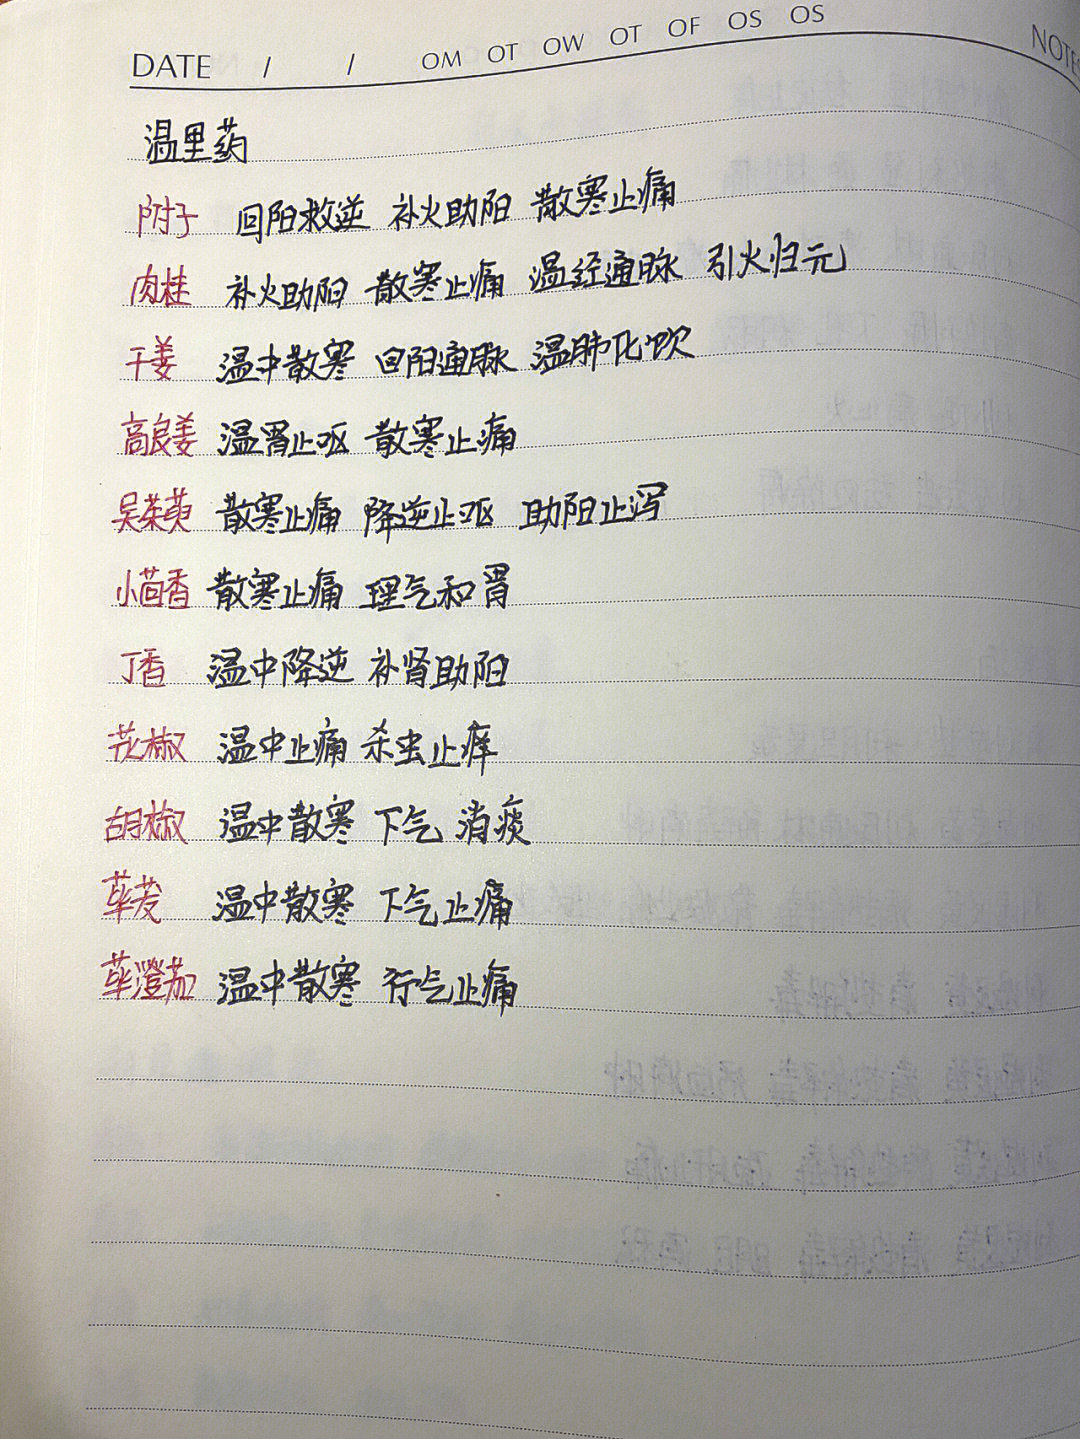 DATE / / OM OT OW OT OF OS OS
NOTES
温里药
附子 回阳救逆 补火助阳 散寒止痛
肉桂 补火助阳 散寒止痛 温经通脉 引火归元
干姜 温中散寒 回阳通脉 温肺化饮
高良姜 温胃止呕 散寒止痛
吴茱萸 散寒止痛 降逆止呕 助阳止泻
小茴香 散寒止痛 理气和胃
丁香 温中降逆 补肾助阳
花椒 温中止痛 杀虫止痒
胡椒 温中散寒 下气 消痰
荜茇 温中散寒 下气止痛
荜澄茄 温中散寒 行气止痛